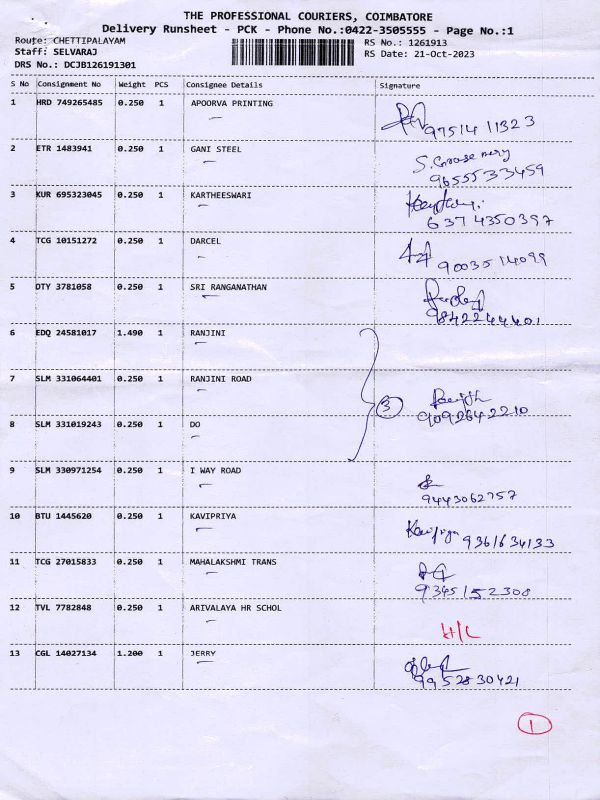 THE PROFESSIONAL COURIERS, COIMBATORE
Delivery Runsheet - PCK - Phone No.:0422-3505555 - Page No.:1
Route: CHETTIPALAYAM RS No.: 1261913
Staff: SELVARAJ RS Date: 21-Oct-2023
DRS No.: DCJB126191301
S No Consignment No Weight PCS Consignee Details Signature
1 HRD 749265485 0.250 1 APOORVA PRINTING
9751411323
2 ETR 1483941 0.250 1 GANI STEEL
9655533459
3 KUR 695323045 0.250 1 KARTHEESWARI
6374350397
4 TCG 10151272 0.250 1 DARCEL
9003514099
5 OTY 3781058 0.250 1 SRI RANGANATHAN
9842244401
6 EDQ 24581017 1.490 1 RANJINI
7 SLM 331064401 0.250 1 RANJINI ROAD
3
9092642210
8 SLM 331019243 0.250 1 DO
9 SLM 330971254 0.250 1 I WAY ROAD
9443062757
10 BTU 1445620 0.250 1 KAVIPRIYA
9361634133
11 TCG 27015833 0.250 1 MAHALAKSHMI TRANS
9345152308
12 TVL 7782848 0.250 1 ARIVALAYA HR SCHOL
H/L
13 CGL 14027134 1.200 1 JERRY
9952830421
1